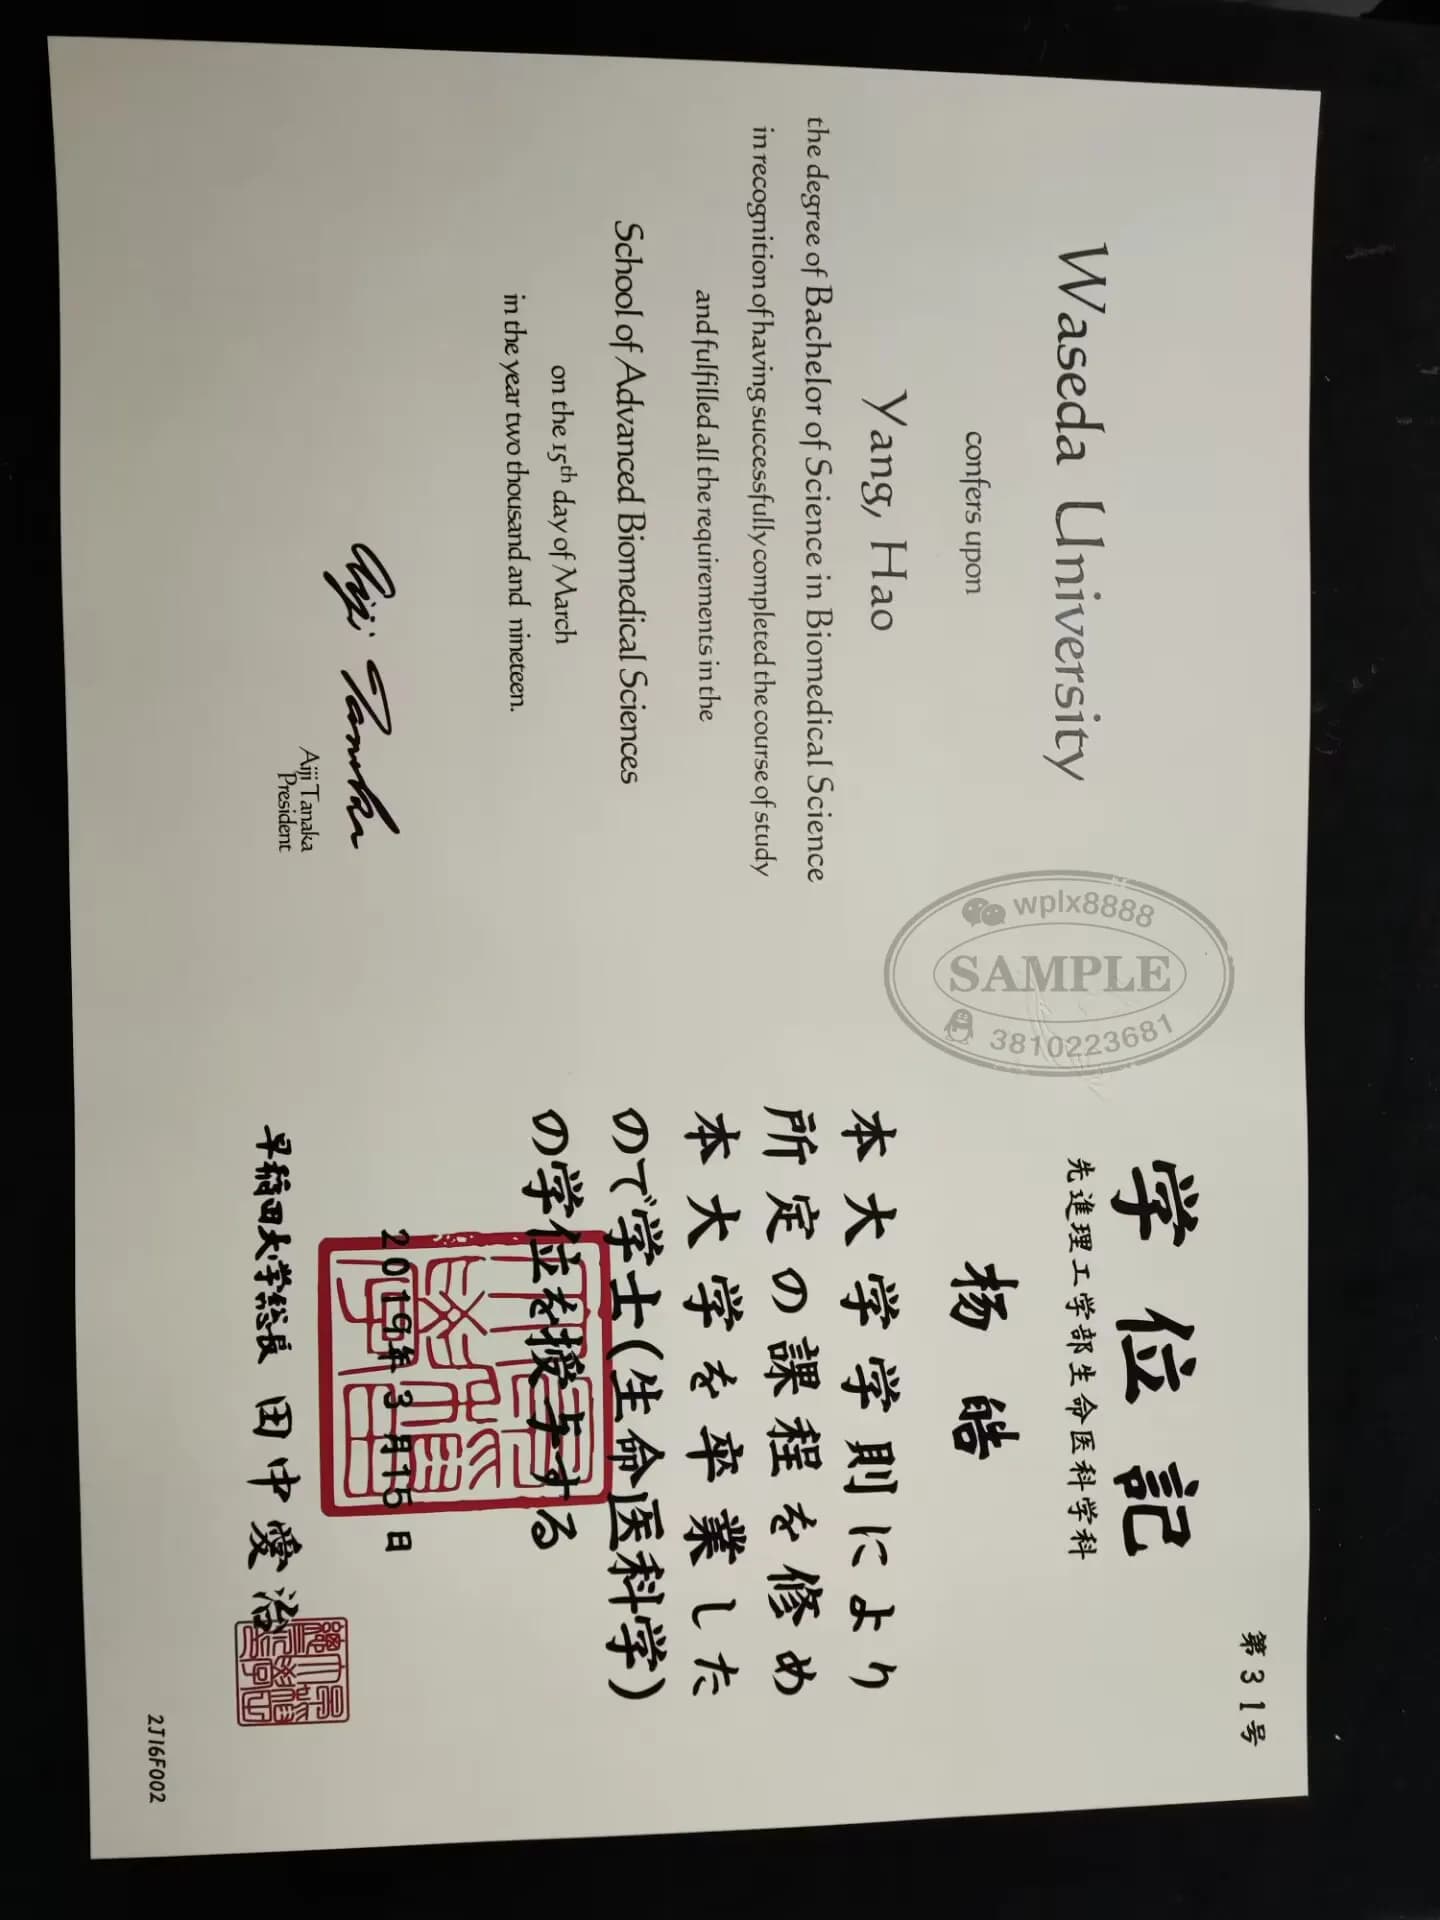 Waseda University
confers upon
Yang, Hao
the degree of Bachelor of Science in Biomedical Science
in recognition of having successfully completed the course of study
and fulfilled all the requirements in the
School of Advanced Biomedical Sciences
on the 15th day of March
in the year two thousand and nineteen.
Aiji Tanaka
Aiji Tanaka
President
wplx8888
SAMPLE
3810223681
第31号
学位記
先進理工学部生命医科学科
杨皓
本大学学則により
所定の課程を修め
本大学を卒業した
ので学士(生命医科学)
の学位を授与する
2019年3月15日
早稲田大学総長 田中愛治
2J16F002